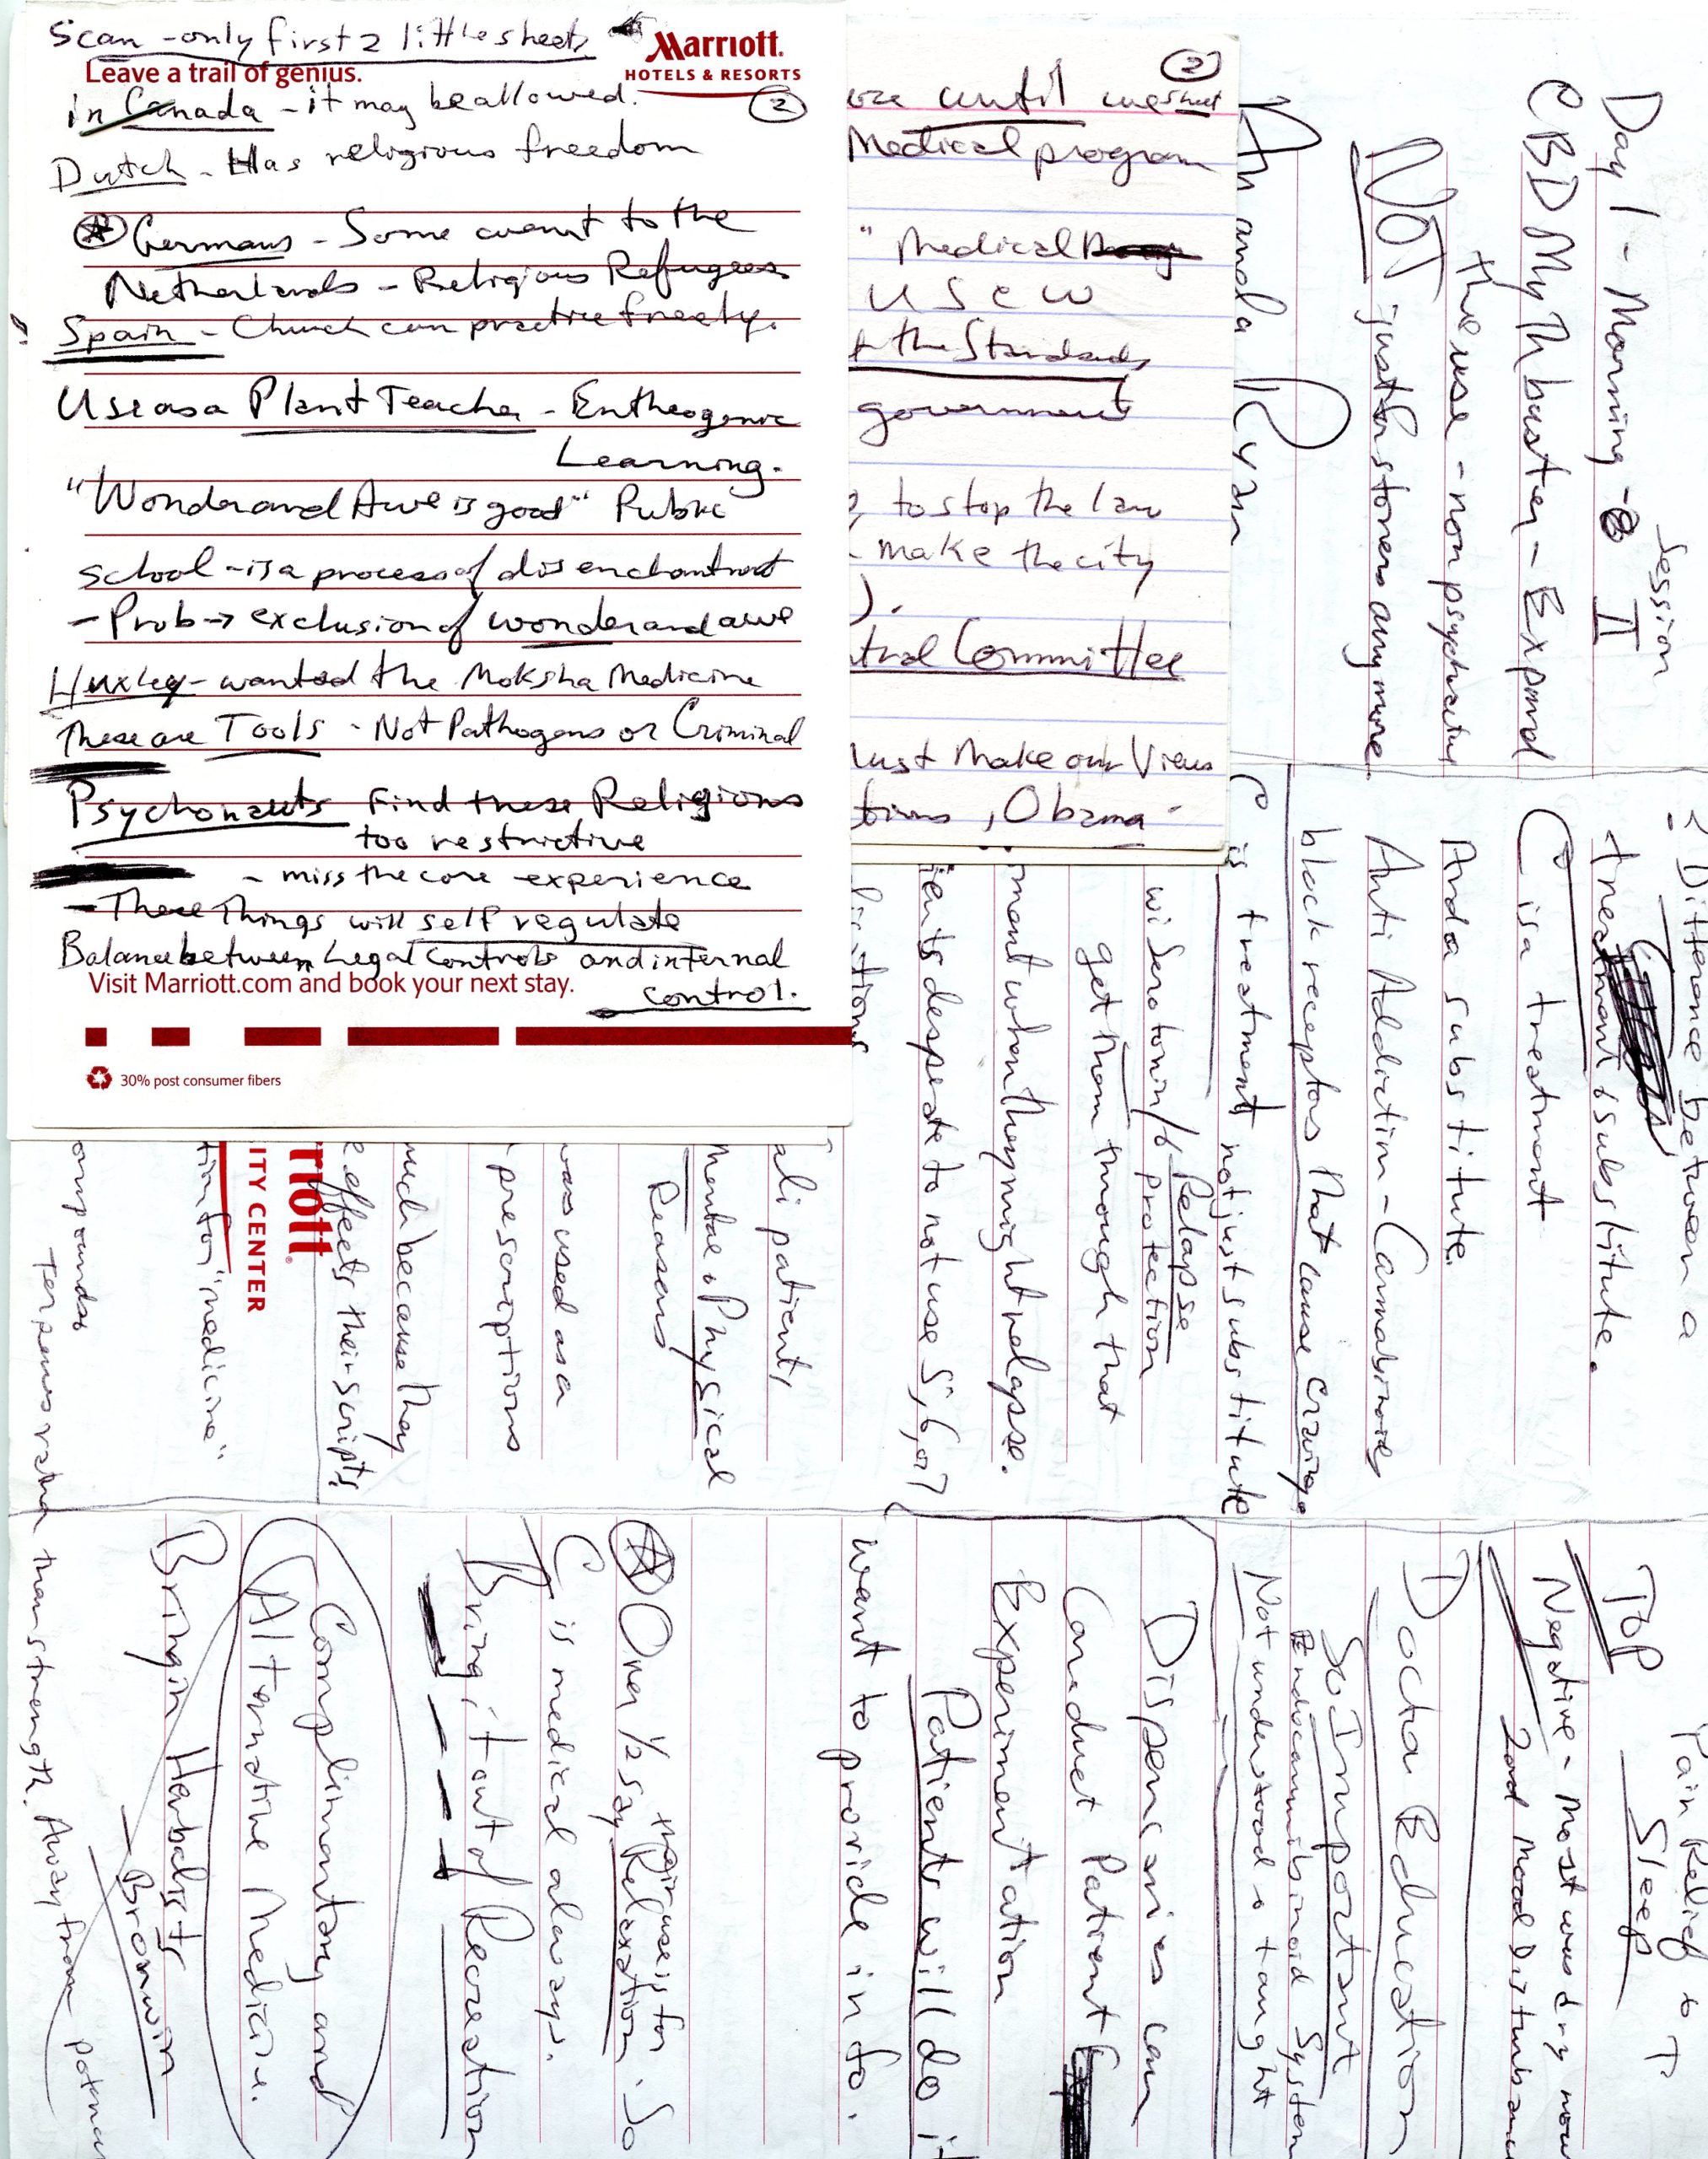 Scan - only first 2 little sheets
Marriott.
HOTELS & RESORTS
Leave a trail of genius.
in Canada - it may be allowed.
2
Dutch - Has religious freedom
Germans - Some went to the
Netherlands - Religious Refugees
Spain - Church can practice freely.
Use as a Plant Teacher - Entheogenic
Learning.
"Wonder and Awe is good" Public
school - is a process of disenchantment
- Prob → exclusion of wonder and awe
Huxley - wanted the Moksha Medicine
These are Tools - Not Pathogens or Criminal
Psychonauts Find these Religions
too restrictive
- miss the core experience
- These Things will self regulate
Balance between Legal Controls and internal
control.
Visit Marriott.com and book your next stay.
30% post consumer fibers
2
until
Medical program
" Medical
U S C W
the Standards
government
to stop the law
make the city
).
Committee
ust Make our Views
, Obama -
Day 1 - Morning - Session II
CBD Mythbuster - Expand
the use - non psychoactive
NOT just for stoners anymore
Amanda Ryan
Difference between a
treatment & substitute.
C is a treatment
And a substitute.
Anti Addiction - Cannabinoids
block receptors that cause cravings
C is treatment not just substitute
w/ Serotonin/ Relapse
protection
get them through that
moment when they might relapse.
ients desperate to not use 5, 6, or 7
ali patients
Mental & Physical
Reasons
was used as a
prescriptions
much because they
effects their scripts
rriott
ITY CENTER
tion for "medicine"
ompounds
Terpenes rather than strength. Away from
Pain Relief &
TOP
Sleep
Negative - Most was dry mouth
2nd Mood Disturbance
Doctor Education
So Important
Endocannabinoid System
Not understood & taught
Dispensaries can
Conduct Patient
Experimentation
Patients will do it
want to provide info.
Over 1/2 say their use is for
Relaxation. So
C is medical always.
Bring it out of Recreation
Complimentary and
Alternative Medicine.
Bring in Herbalists
- Bronwin